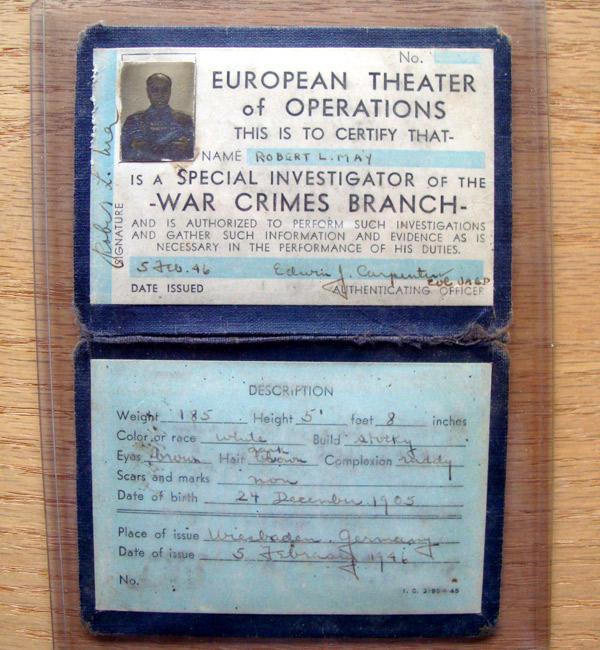 No.
EUROPEAN THEATER
of OPERATIONS
THIS IS TO CERTIFY THAT-
NAME ROBERT L. MAY
IS A SPECIAL INVESTIGATOR OF THE
-WAR CRIMES BRANCH-
AND IS AUTHORIZED TO PERFORM SUCH INVESTIGATIONS
AND GATHER SUCH INFORMATION AND EVIDENCE AS IS
NECESSARY IN THE PERFORMANCE OF HIS DUTIES.
5 Feb. 46 Edwin J. Carpenter
DATE ISSUED AUTHENTICATING OFFICER
SIGNATURE Robert L. May
DESCRIPTION
Weight 185 Height 5' feet 8 inches
Color or race white Build stocky
Eyes brown Hair brown Complexion ruddy
Scars and marks non
Date of birth 24 December 1905
Place of issue Wiesbaden, Germany
Date of issue 5 February 1946
No.